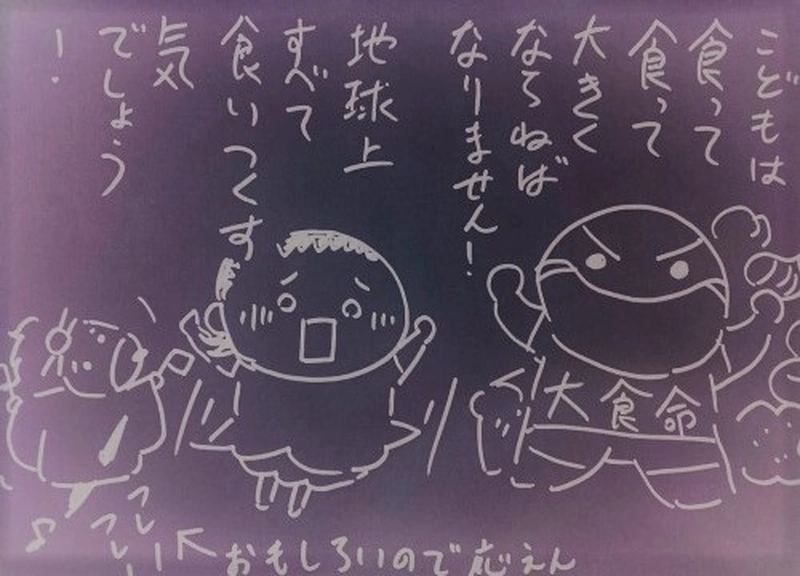 こどもは
食って
食って
大きく
ならねば
なりません!
地球上
すべて
食いつくす
気
でしょう
!
大食命
フレー
フレー
おもしろいので応えん